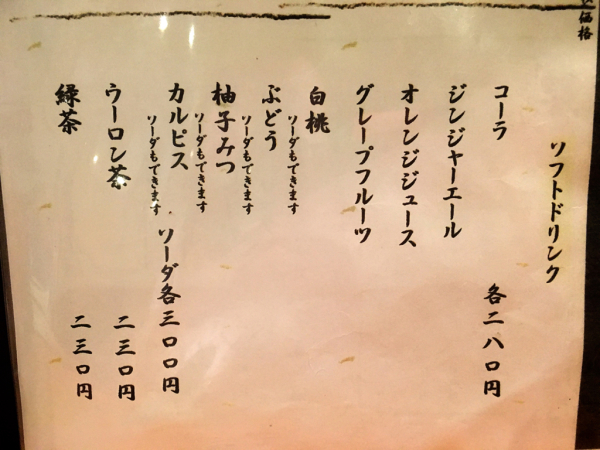 価格
ソフトドリンク
コーラ 各二八〇円
ジンジャーエール
オレンジジュース
グレープフルーツ
白桃
ソーダもできます
ぶどう
ソーダもできます
柚子みつ
ソーダもできます
カルピス ソーダ各三〇〇円
ソーダもできます
ウーロン茶 二三〇円
緑茶 二三〇円